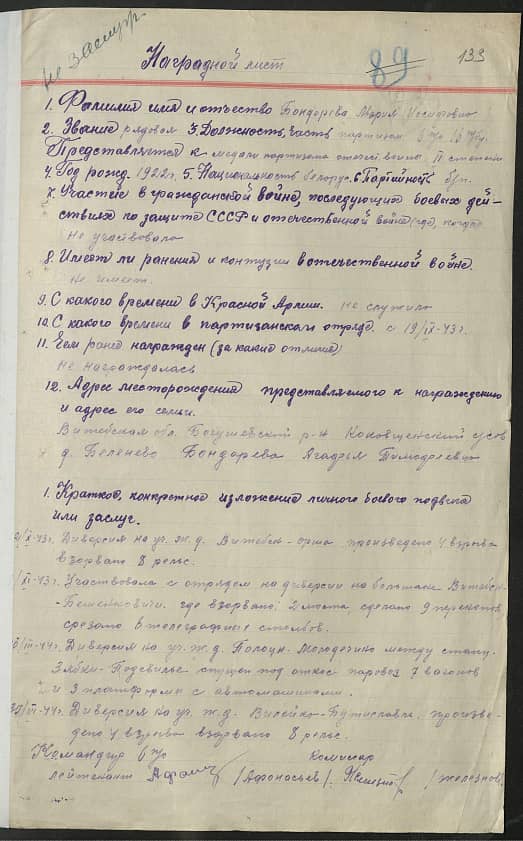 не заслуж
Наградной лист 89 133
1. Фамилия имя и отчество Бондарева Мария Иосифовна
2. Звание рядовой 3. Должность, часть партизан
Представляется к медали партизана отечес. войны II степени
4. Год рожд. 1922г. 5. Национальность белорус. 6. Партийность б/п.
7. Участие в гражданской войне, последующих боевых дей-
ствиях по защите СССР и отечественной войне (где, когда)
не участвовала
8. Имеет ли ранения и контузии в отечественной войне.
не имеет.
9. С какого времени в Красной Армии. не служила
10. С какого времени в партизанском отряде. с 19/IX-43г.
11. Чем ранее награжден (за какие отличия)
не награждалась
12. Адрес месторождения представляемого к награждению
и адрес его семьи.
Витебская обл. Богушевский р-н с/сов
д. Беленево Бондарева Агафья Тимофеевна
1. Краткое, конкретное изложение личного боевого подвига
или заслуг.
Диверсия на уч. ж.д. Витебск-Орша произведено 4 взрыва
взорвано 8 рельс.
/XI-43г. Участвовала с отрядом на диверсии на большаке Витебск-
-Бешенковичи. где взорвано: 2 моста сделано 9 перекопов
срезано телеграфных столбов.
/III-44г. Диверсия на уч. ж.д. Полоцк-Молодечно между станц.
Зябки-Подсвилье спущен под откос паровоз 7 вагонов
и 3 платформы с автомашинами.
/VI-44г. Диверсия на уч. ж.д. Вилейка- произве-
дено 4 взрыва взорвано 8 рельс.
Командир комиссар
лейтенант /Афонасьев/. /Железнов/